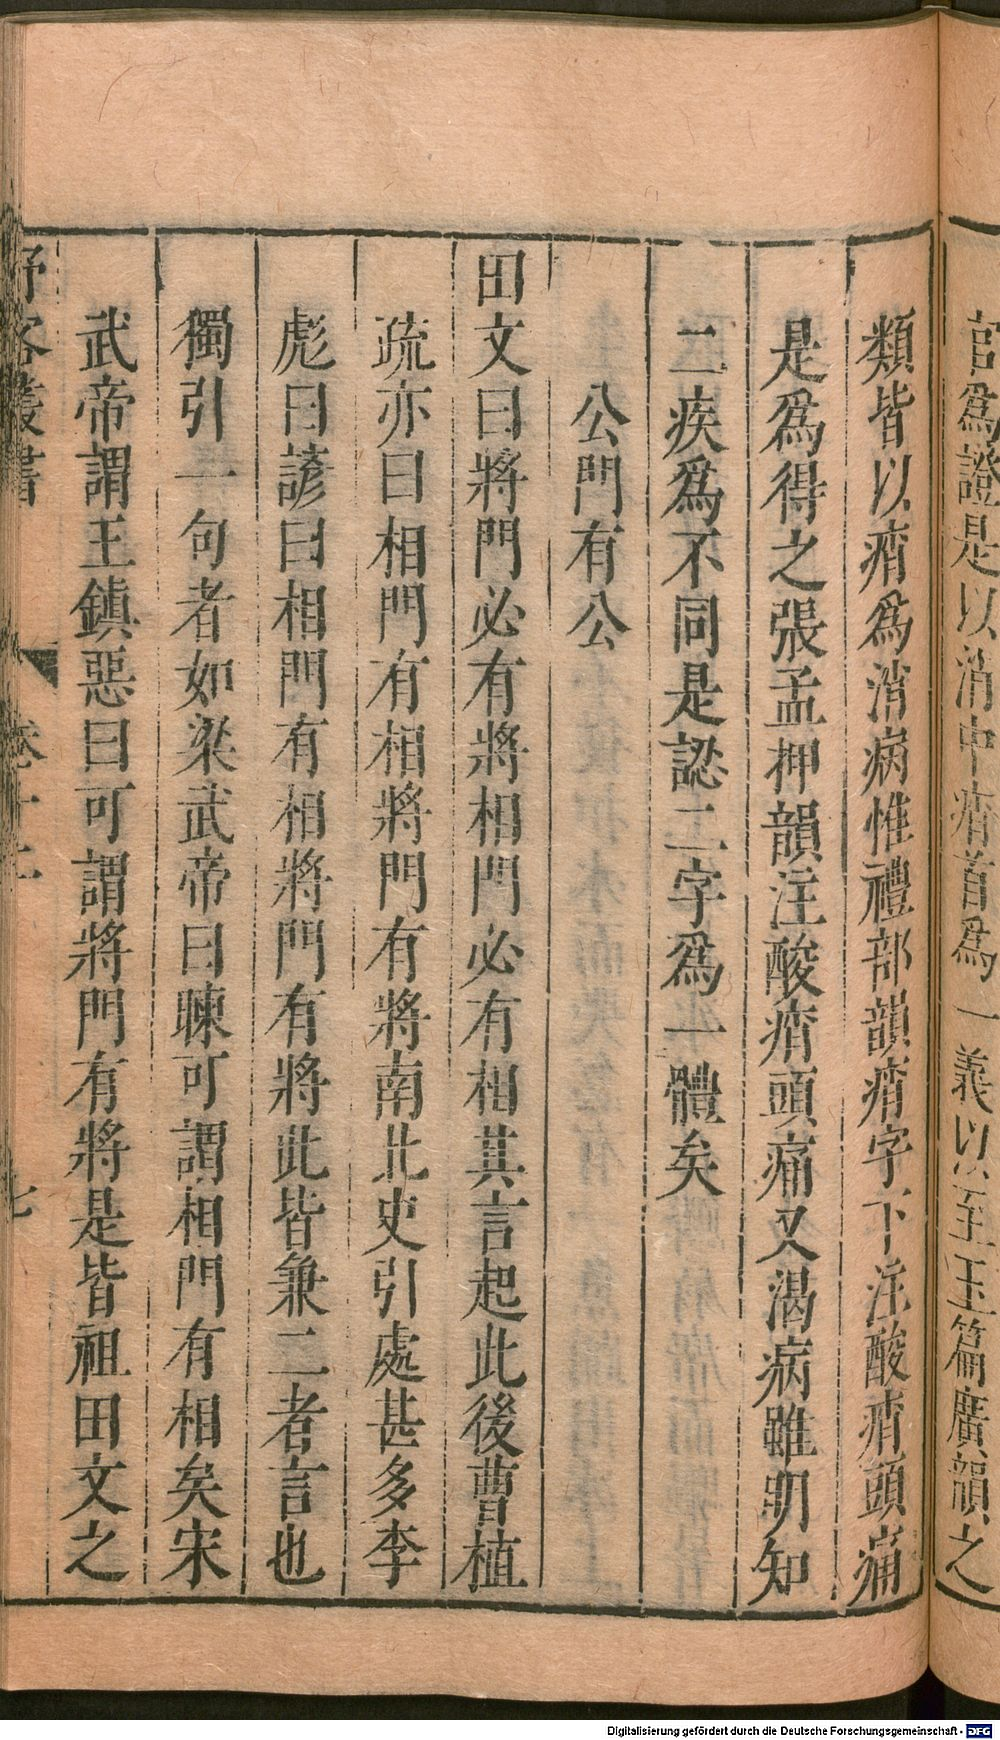 官爲證是以消中痟首爲一義以至玉篇廣韻之
類皆以痟爲消病惟禮部韻痟字下注酸痟頭痛
是爲得之張孟押韻注酸痟頭痛又渴病雖明知
二疾爲不同是認二字爲一體矣
公門有公
田文曰將門必有將相門必有相其言起此後曹植
疏亦曰相門有相將門有將南北史引處甚多李
彪曰諺曰相門有相將門有將此皆兼二者言也
獨引一句者如梁武帝曰暕可謂相門有相矣宋
武帝謂王鎮惡曰可謂將門有將是皆祖田文之
野客叢書 卷十二 七
Digitalisierung gefördert durch die Deutsche Forschungsgemeinschaft - DFG